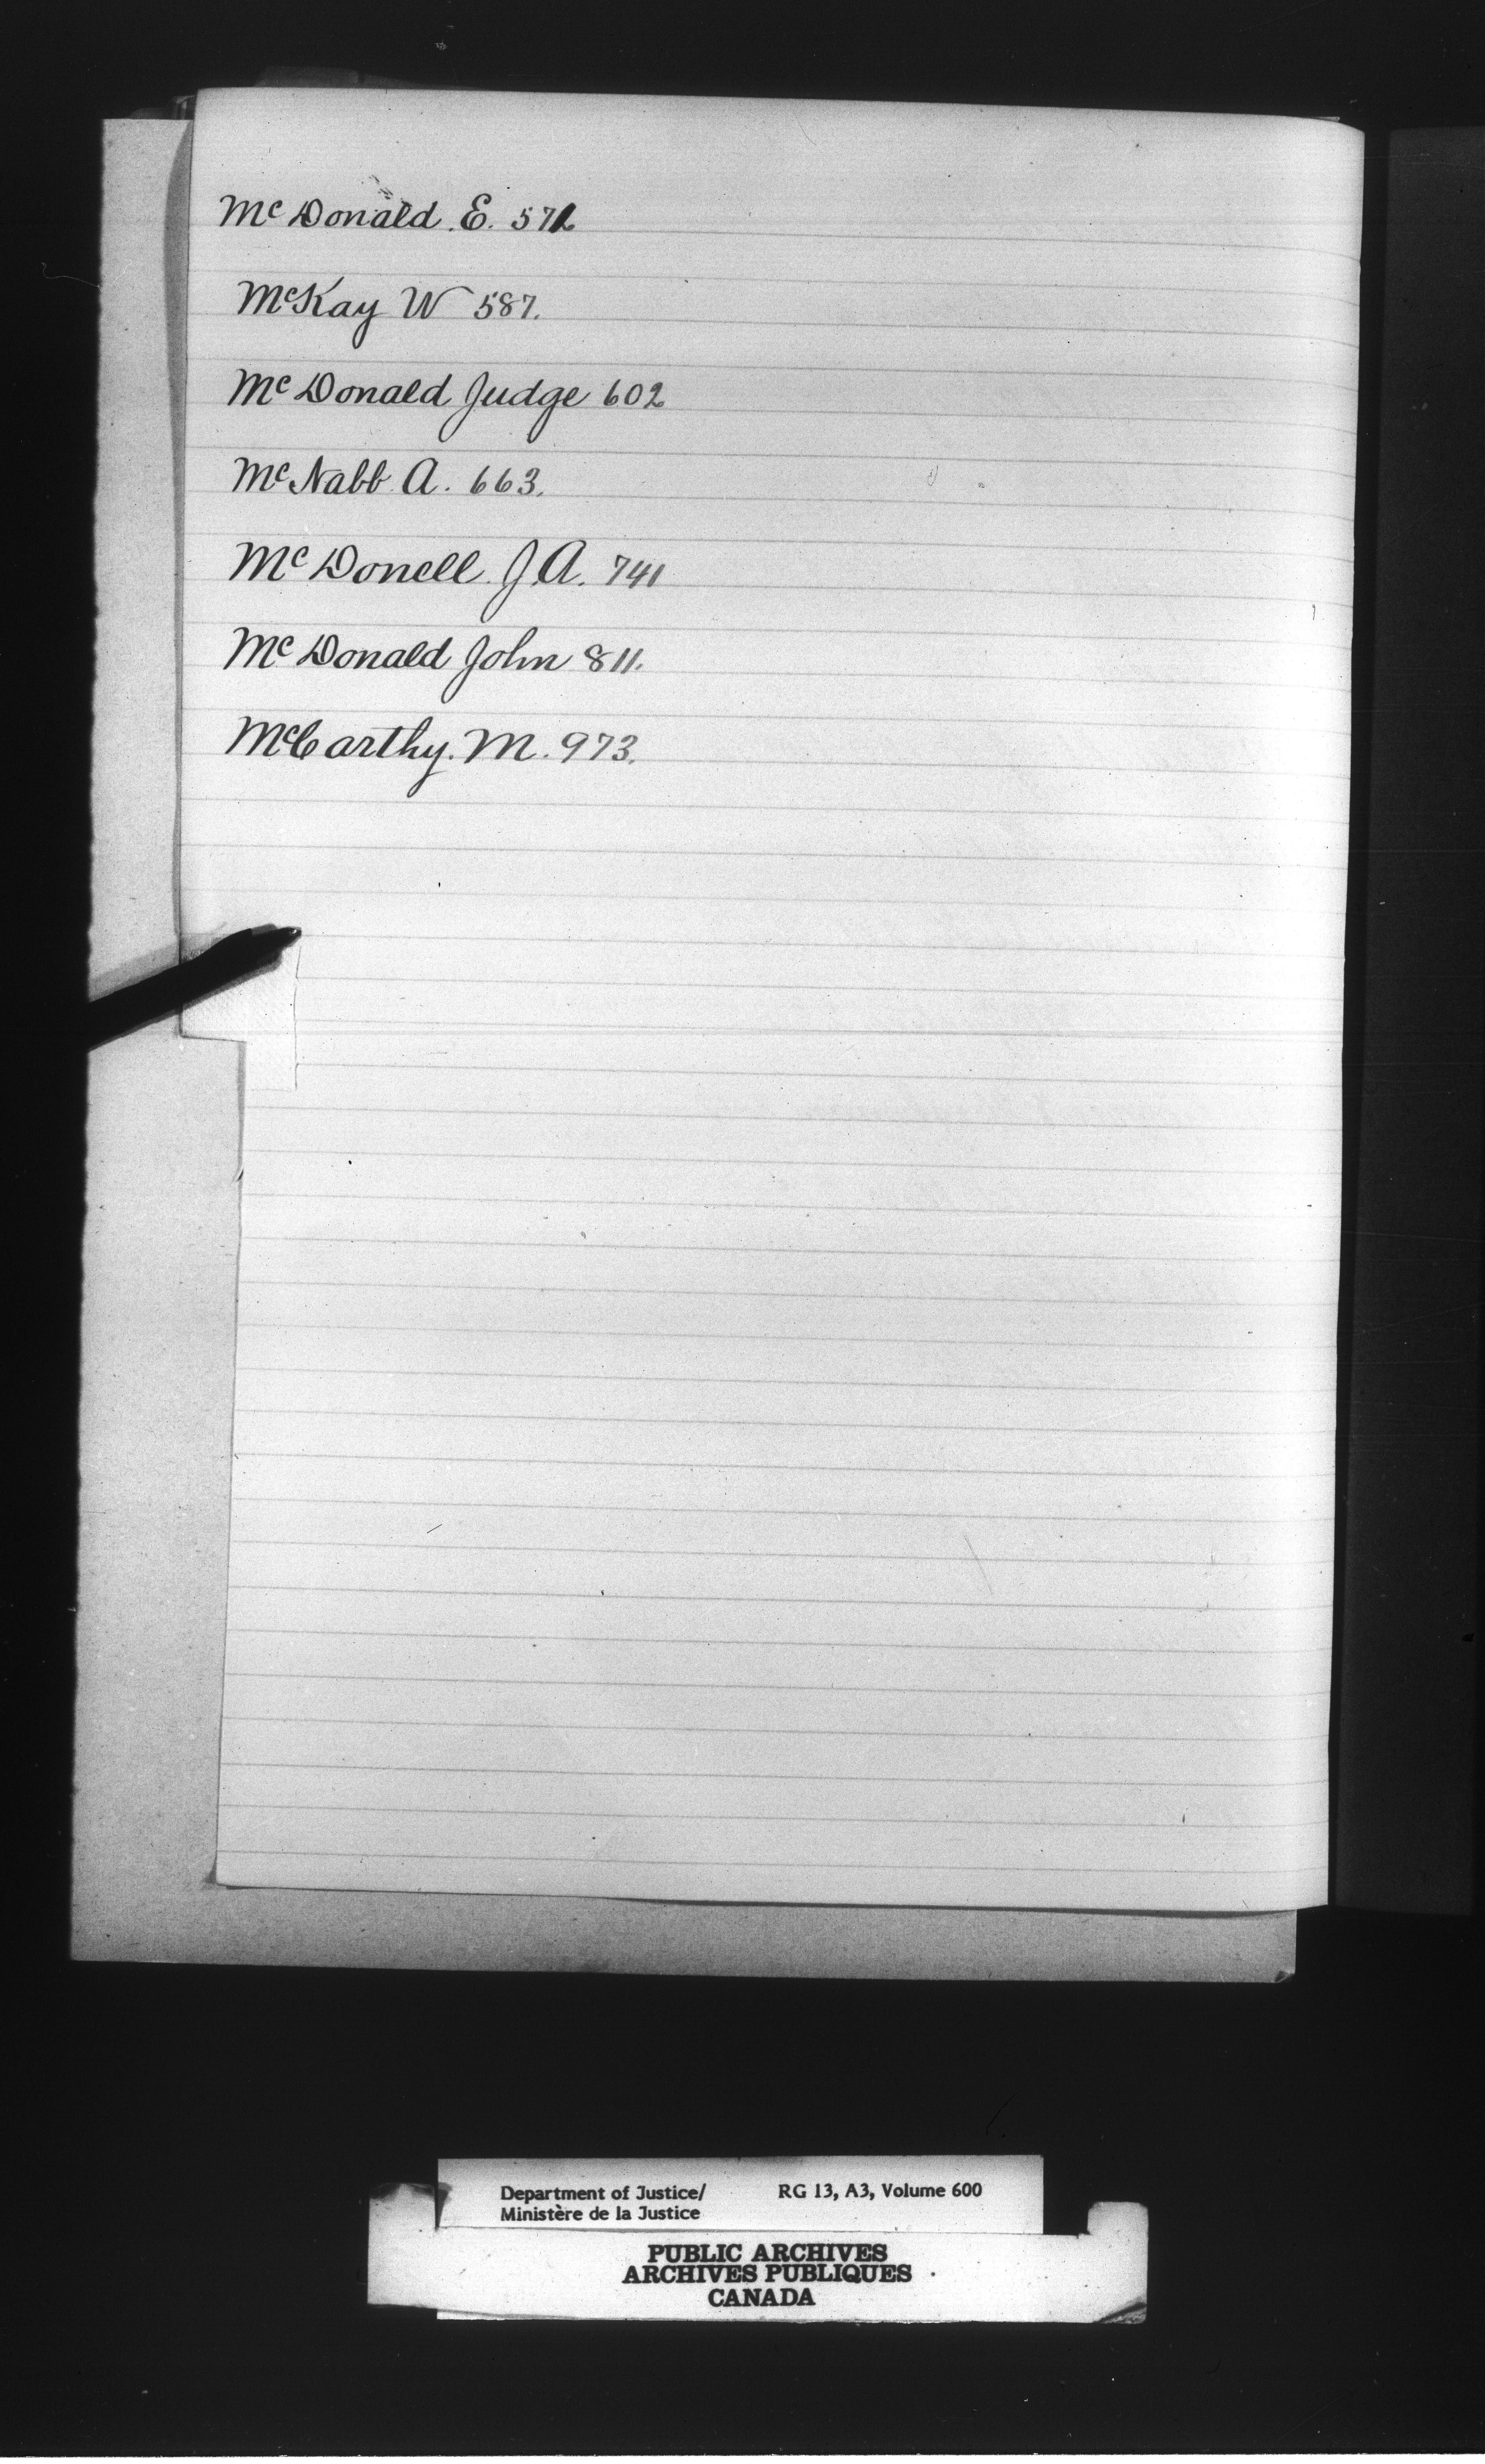 McDonald. E. 572
McKay W 587.
McDonald Judge 602
McNabb. A. 663.
McDonell. J. A. 741
McDonald John 811.
McCarthy. M. 973.
Department of Justice/ RG 13, A3, Volume 600
Ministère de la Justice
PUBLIC ARCHIVES
ARCHIVES PUBLIQUES
CANADA